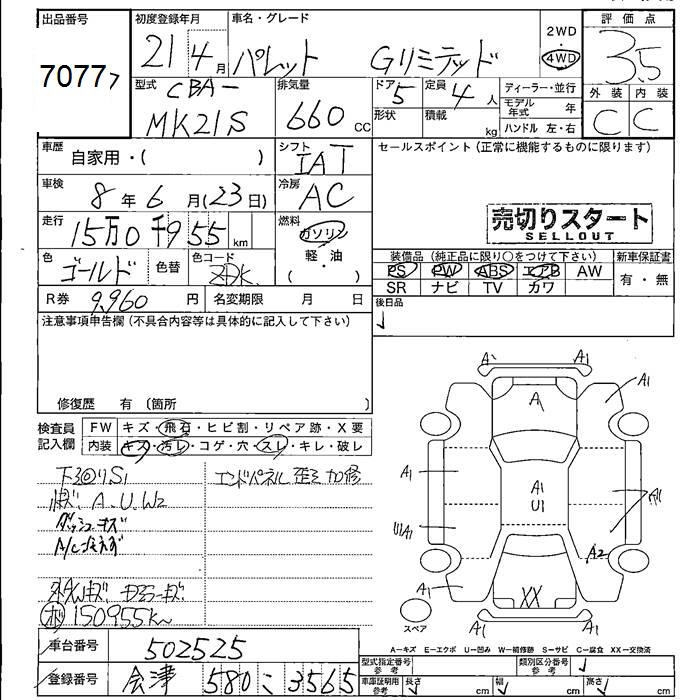 出品番号
初度登録年月
車名・グレード
2WD
4WD
評価点
7077
21年4月
パレット Gリミテッド
3.5
外装 内装
C C
型式
CBA-
MK21S
排気量
660 CC
ドア
5
定員
4 人
形状
積載
kg
ディーラー・並行
モデル年式 年
ハンドル 左・右
車歴
自家用・( )
シフト
IAT
セールスポイント(正常に機能するものに限ります)
車検
8年6月(23日)
冷房
AC
売切りスタート
SELLOUT
走行
15万0千955km
燃料
ガソリン
軽・油
( )
色
ゴールド
色替
色コード
ZDK
装備品(純正品に限り○をつけて下さい)
新車保証書
PS PW ABS エアB AW
SR ナビ TV カワ
有・無
R券 9,960 円
名変期限 月 日
後日品
注意事項申告欄(不具合内容等は具体的に記入して下さい)
修復歴 有(箇所 )
検査員
記入欄
FW キズ・飛石・ヒビ割・リペア跡・X要
内装 キズ・汚レ・コゲ・穴・スレ・キレ・破レ
下回りS1
エンドパネル歪ミ加修
A.U.W2
ダッシュキズ
150955km
車台番号
502525
登録番号
会津 580 こ 3565
A1 A1
A
A1
A1
A1
U1
A1
U1A1
A2
A1
XX
A1 A1
スペア
A-キズ E-エクボ U-凹み W-補修跡 S-サビ C-腐食 XX-交換済
型式指定番号
参考
類別区分番号
参考
車庫証明用
参考
長さ
cm
幅
cm
高さ
cm